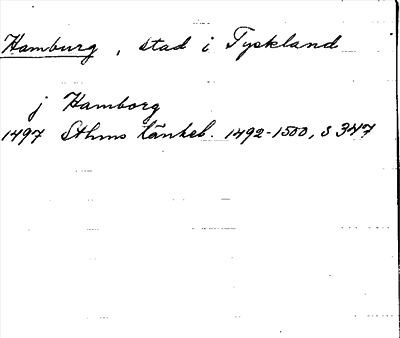 Hamburg, stad i Tyskland
j Hamborg
1497 Sthms tänkeb. 1492-1500, s 347